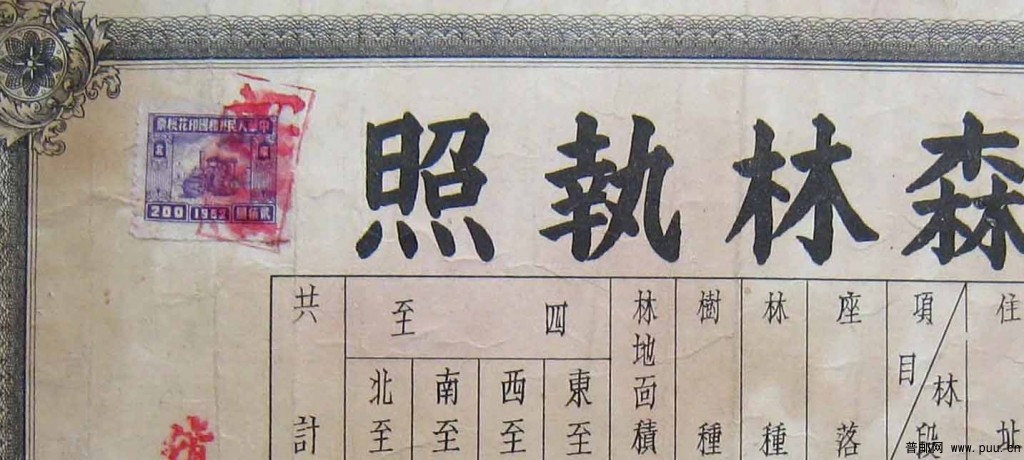 森林執照
中華人民共和國印花稅票
200 1952 貳佰圓
住址
項目 林段
座落
林種
樹種
林地面積
四至
東至
西至
南至
北至
共計
普邮网 www.puu.cn